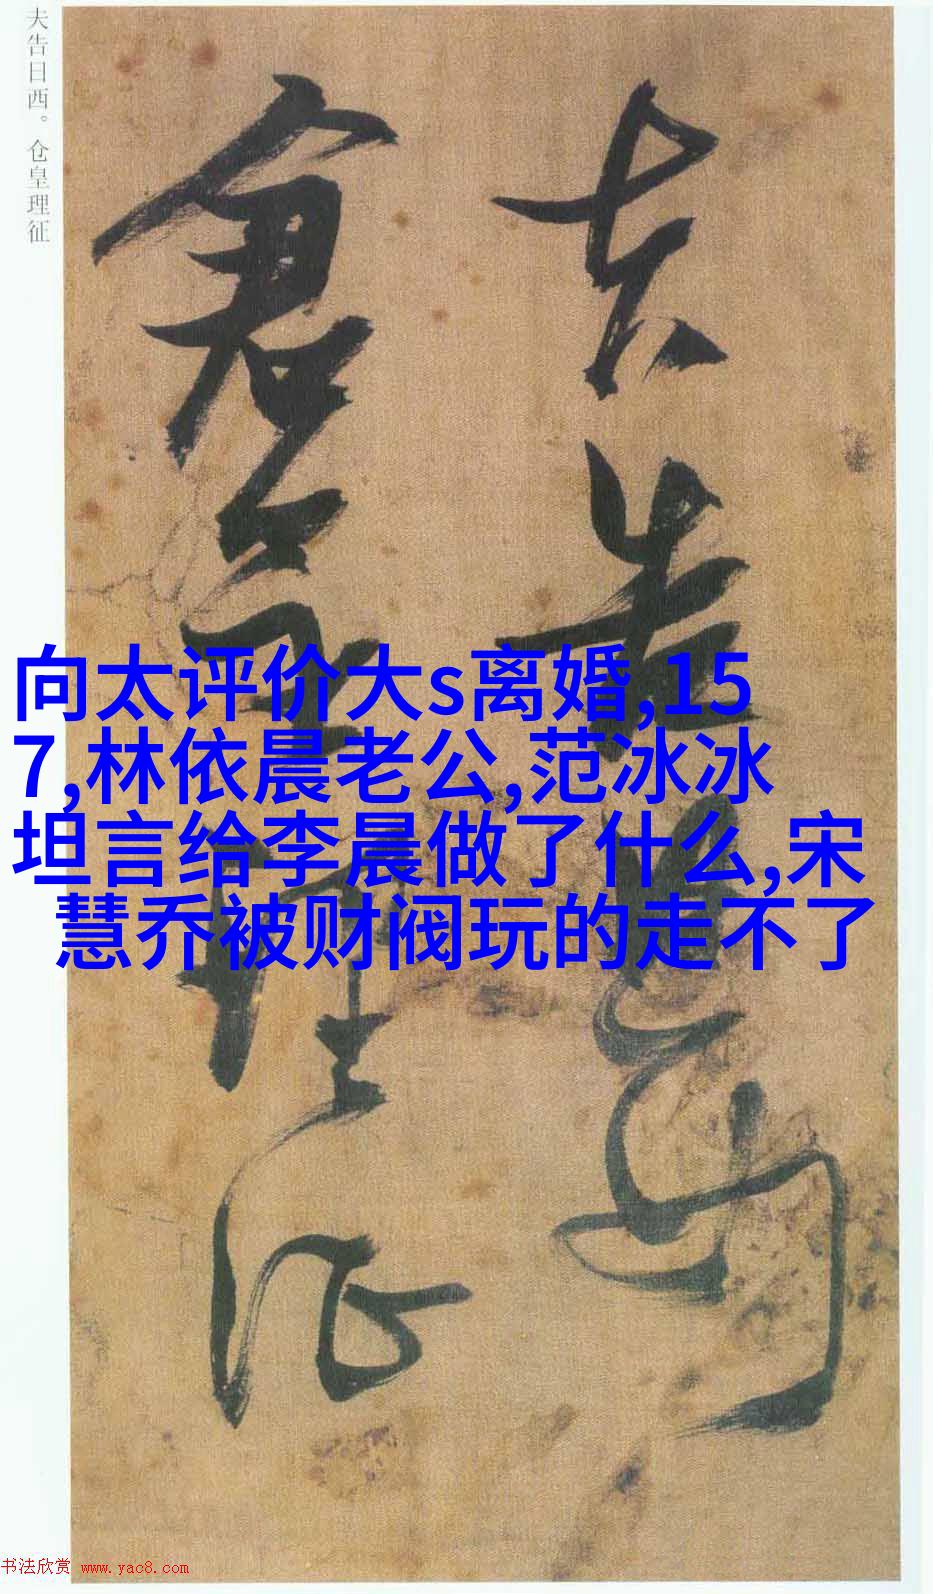 夫告日西。仓皇理征
夫告日西
仓皇理征
向太评价大s离婚,15
7,林依晨老公,范冰冰
坦言给李晨做了什么,宋
慧乔被财阀玩的走不了
书法欣赏 www.yac8.com